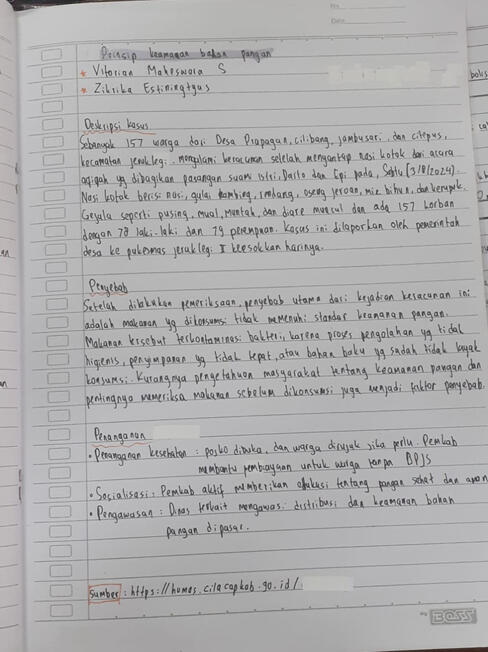 No
Date
Prinsip keamanan bahan pangan
* Vitorian Maheswara S
* Zikrika Estiningtyas
Deskripsi kasus
Sebanyak 157 warga dari Desa Prapagan, cilibang, jambusari, dan citepus,
kecamatan jeruklegi. mengalami keracunan setelah menyantap nasi kotak dari acara
aqiqah yg dibagikan pasangan suami istri, Darto dan Epi pada, Sabtu (3/8/2024).
Nasi kotak berisi nasi, gulai kambing, rendang, oseng jeroan, mie bihun, dan kerupuk.
Gejala seperti pusing, mual, muntah, dan diare muncul dan ada 157 korban
dengan 78 laki-laki dan 79 perempuan. Kasus ini dilaporkan oleh pemerintah
desa ke puskesmas jeruklegi I keesokkan harinya.
Penyebab
Setelah dilakukan pemeriksaan, penyebab utama dari kejadian keracunan ini
adalah makanan yg dikonsumsi tidak memenuhi standar keamanan pangan.
Makanan tersebut terkontaminasi bakteri, karena proses pengolahan yg tidak
higienis, penyimpanan yg tidak tepat, atau bahan baku yg sudah tidak layak
konsumsi. Kurangnya pengetahuan masyarakat tentang keamanan pangan dan
pentingnya memeriksa makanan sebelum dikonsumsi juga menjadi faktor penyebab.
Penanganan
• Penanganan kesehatan : posko dibuka, dan warga dirujuk jika perlu. Pemkab
membantu pembiayaan untuk warga tanpa BPJS
• Sosialisasi : Pemkab aktif memberikan edukasi tentang pangan sehat dan aman
• Pengawasan : Dinas terkait mengawasi distribusi dan keamanan bahan
pangan dipasar.
Sumber : https://humas.cilacapkab.go.id/
BOSS